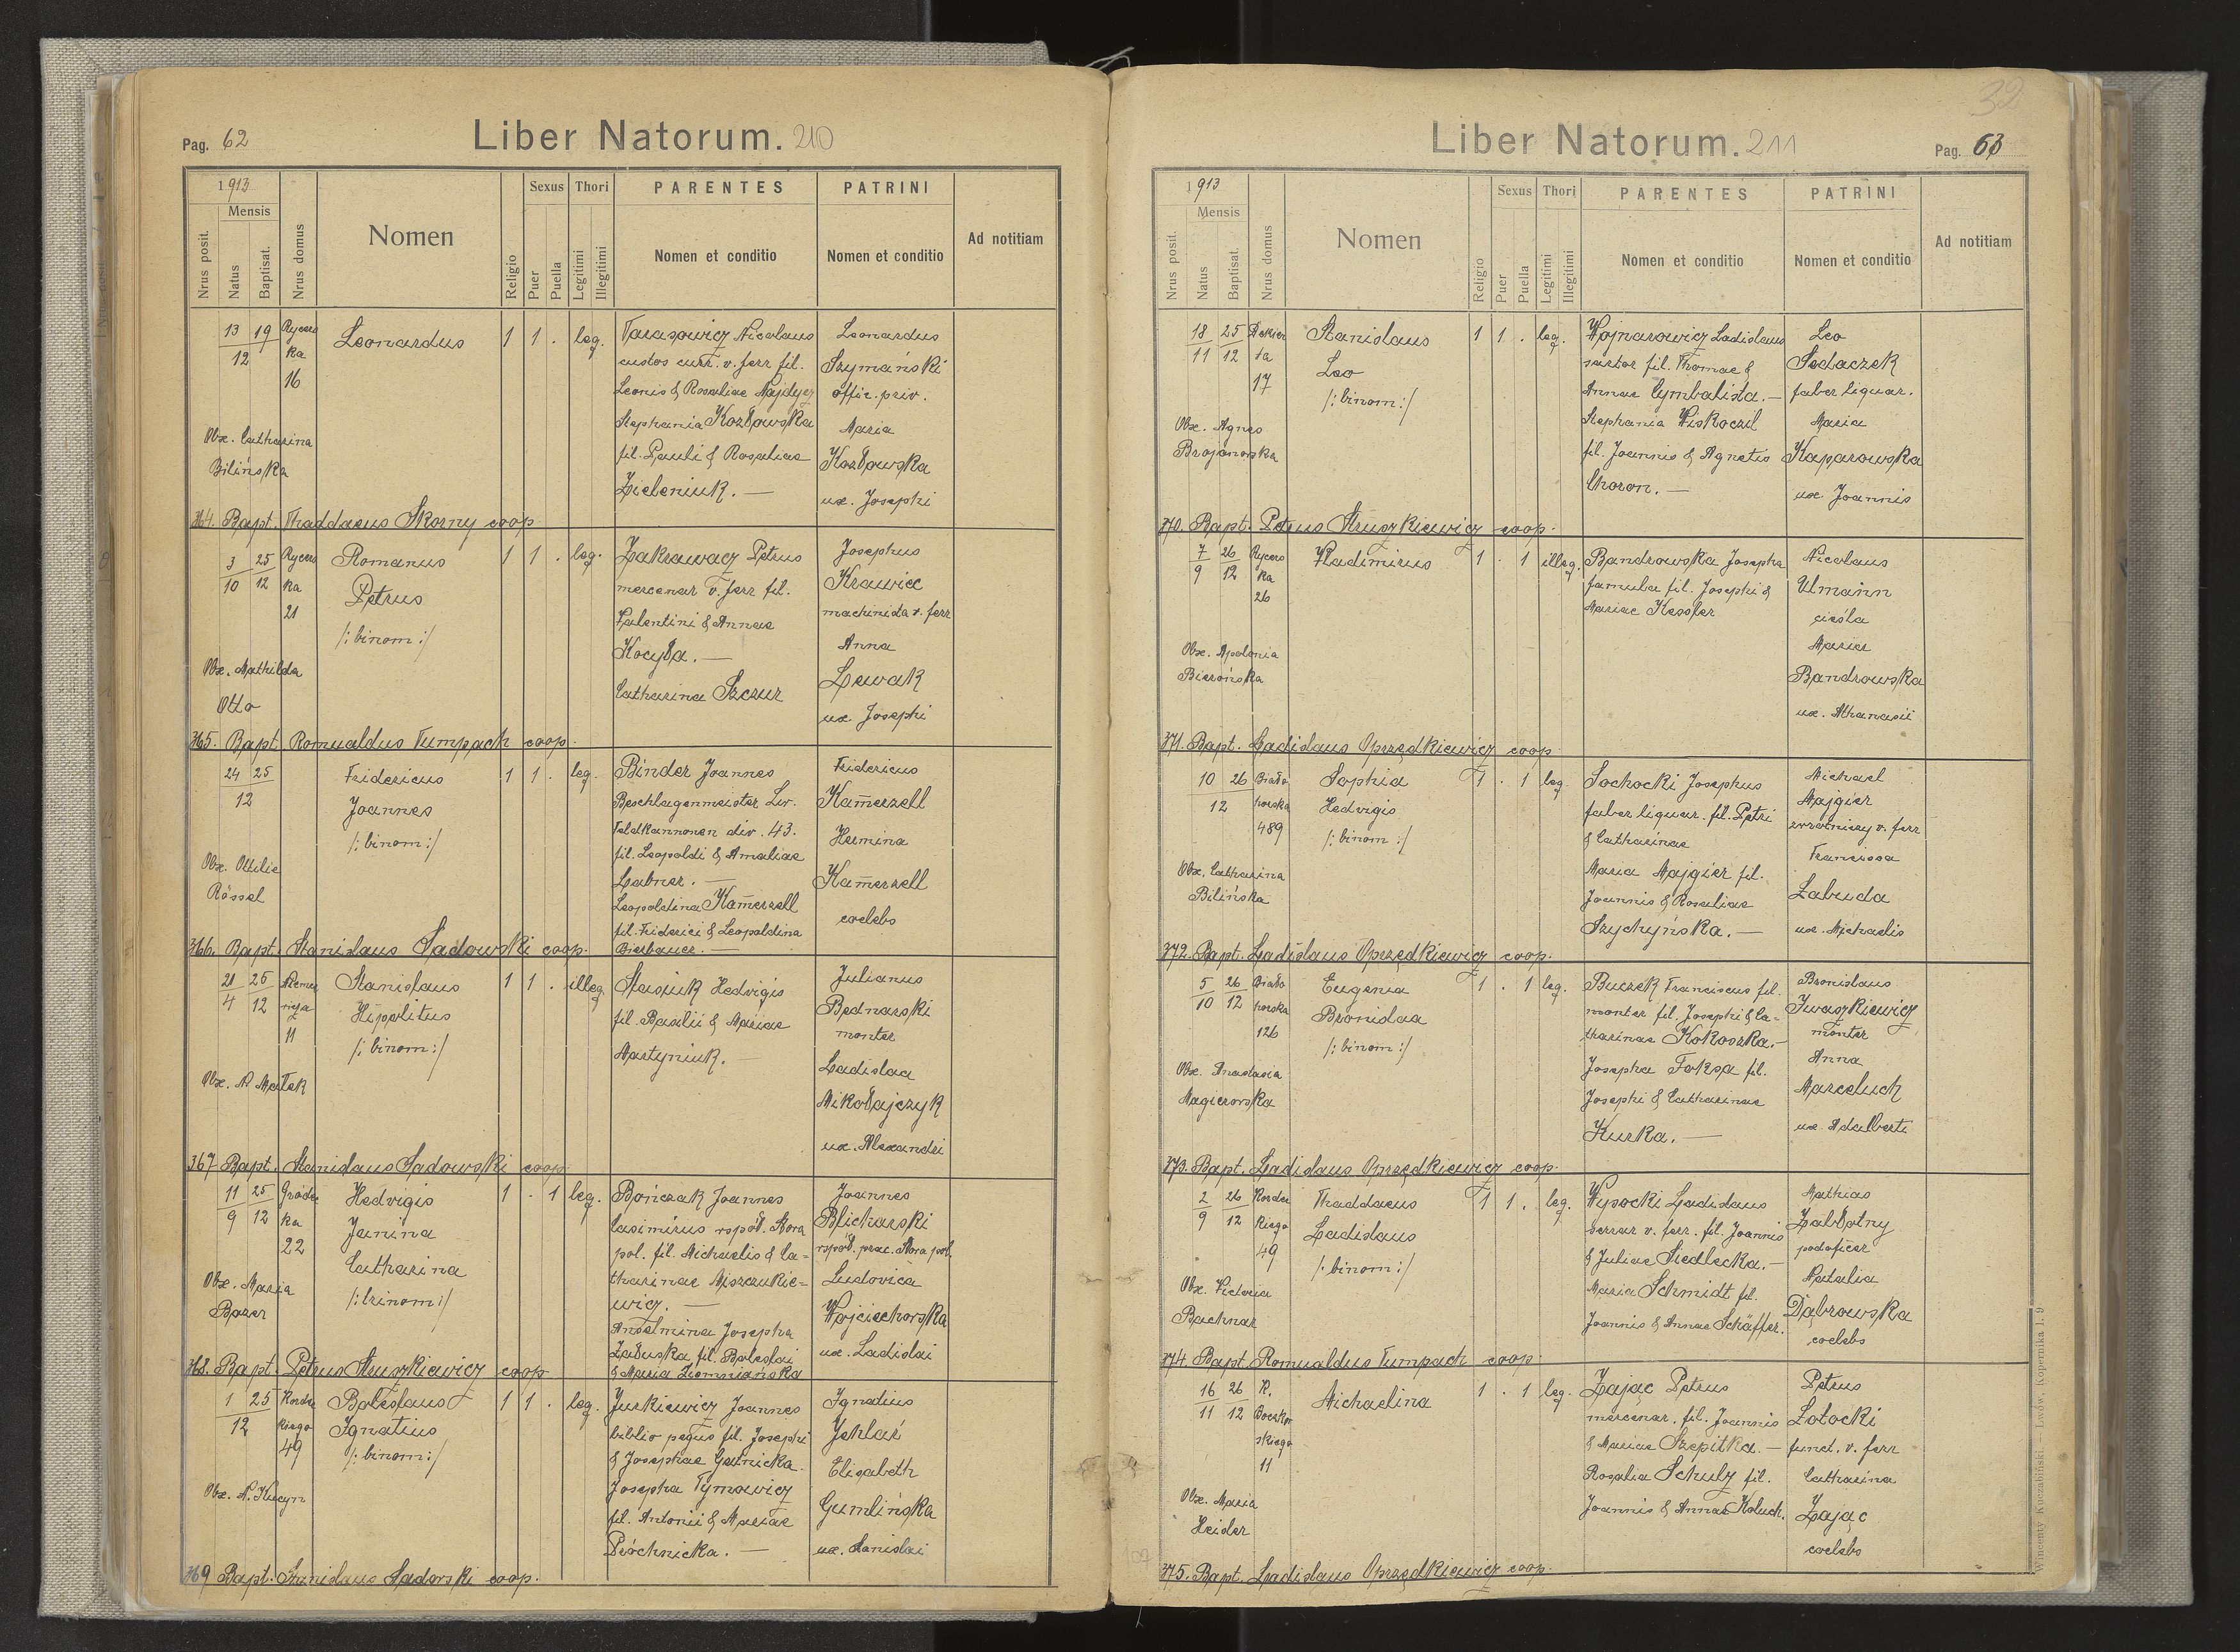 Pag. 62
Liber Natorum. 210
1913
Mensis
Nrus posit.
Natus
Baptisat.
Nrus domus
Nomen
Religio
Sexus
Puer
Puella
Thori
Legitimi
Illegitimi
PARENTES
Nomen et conditio
PATRINI
Nomen et conditio
Ad notitiam
13 19
12
Rycers
ka
16
Leonardus
1 1 . leg.
Tarasowicz Nicolaus
custos curr. v. ferr fil.
Leonis & Rosaliae Najdycz
Stephania Kozłowska
fil. Pauli & Rosaliae
Zieleniuk. —
Leonardus
Szymański
offic. priv.
Maria
Kozłowska
ux. Josephi
Obx. Catharina
Bilińska
364. Bapt. Thaddaeus Skorny coop
3 25
10 12
Rycers
ka
21
Romanus
Petrus
/: binom :/
1 1 . leg.
Zakrawacz Petrus
mercenar v. ferr fil.
Valentini & Annae
Kocyła. —
Catharina Szczur
Josephus
Krawiec
machinista v. ferr
Anna
Lewak
ux. Josephi
Obx. Mathilda
Otto
365. Bapt. Romualdus Tumpach coop.
24 25
12
Fridericus
Joannes
/: binom :/
1 1 . leg.
Binder Joannes
Beschlagenmeister Lw.
Feldkannonen div. 43.
fil. Leopoldi & Amaliae
Labner. —
Leopoldina Kam̄erzell
fil. Friderici & Leopoldina
Bierbauer. —
Fridericus
Kam̄erzell
Hermina
Kam̄erzell
coelebs
Obx. Ottilie
Rössel
366. Bapt. Stanislaus Sadowski coop.
21 25
4 12
11
Stanislaus
Hipolitus
/: binom :/
1 1 . illeg.
Stasiuk Hedvigis
fil. Basilii & Mariae
Martyniuk. —
Julianus
Bednarski
monter
Ladislaa
Mikołajczyk
ux. Alexandri
Obx. N. Małek
367 Bapt. Stanislaus Sadowski coop
11 25
9 12
Gróde
ka
22
Hedvigis
Janina
Catharina
/: trinom :/
1 . 1 leg.
Bończak Joannes
Casimirus rspoł. Stora
pol. fil. Michaelis & Ca=
tharinae Miszczukie=
wicz. —
Anselmina Josepha
Załuska fil. Boleslai
& Maria Ziemniańska
Joannes
Blicharski
rspoł. prac. Stora pol.
Ludovica
Wojciechowska
ux. Ladislai
Obx. Maria
Bazer
368. Bapt. Petrus Struszkiewicz coop
1 25
12
Korde
kiego
49
Boleslaus
Ignatius
/: binom :/
1 1 . leg.
Jurkiewicz Joannes
biblio pegus fil. Josephi
& Josephae Garnicka.
Josepha Tymowicz
fil. Antonii & Mariae
Próchnicka. —
Ignatius
Elisabeth
Gumlińska
ux. Stanislai
Obx. N. Kucyn
369 Bapt. Stanislaus Sadorski coop.
32
Liber Natorum. 211
Pag. 63
1913
Mensis
Nrus posit.
Natus
Baptisat.
Nrus domus
Nomen
Religio
Sexus
Puer
Puella
Thori
Legitimi
Illegitimi
PARENTES
Nomen et conditio
PATRINI
Nomen et conditio
Ad notitiam
18 25
11 12
17
Stanislaus
Leo
/: binom :/
1 1 . leg.
Wojnarowicz Ladislaus
sartor fil. Thomae &
Annae Cymbalista. —
Stephania Wiskoczil
fil. Joannis & Agnetis
Choron. —
Leo
Sedaczek
faber lignar.
Maria
Kaparowska
ux Joannis
Obx. Agnes
Brojanowska
370. Bapt. Petrus Struszkiewicz coop.
7 26
9 12
Rycers
ka
26
Vladimirus
1 . 1 illeg.
Bandrowska Josepha
famula fil. Josephi &
Mariae Kessler
Nicolaus
Ulmann
cieśla
Maria
Bandrowska
ux. Athanasii
Obx. Apolonia
Bierońska
371. Bapt. Ladislaus Oprzędkiewicz coop
10 26
12
Biało
horska
489
Sophia
Hedvigis
/: binom :/
1 . 1 leg.
Sochocki Josephus
faber lignar. fil. Petri
& Catharinae
Maria Majgier fil.
Joannis & Rosaliae
Szychyńska. —
Michael
Majgier
zwrotniczy v. ferr
Francisca
Labuda
ux. Michaelis
Obx. Catharina
Bilińska
372. Bapt. Ladislaus Oprzędkiewicz coop.
5 26
10 12
Biało
horska
126
Eugenia
Bronislaa
/: binom :/
1 . 1 leg.
Buczek Franciscus fil.
monter fil. Josephi & Ca=
tharinae Kokoszka. —
Josepha Foksa fil.
Josephi & Catharinae
Kurka. —
Bronislaus
Iwaszkiewicz
monter
Anna
Marceluch
ux. Adalberti
Obx. Anastasia
Magierowska
373. Bapt. Ladislaus Oprzędkiewicz coop.
2 26
9 12
Korde
kiego
49
Thaddaeus
Ladislaus
/: binom :/
1 1 . leg.
Wysocki Ladislaus
serrar v. ferr. fil. Joannis
& Juliae Siedlecka. —
Maria Schmidt fil.
Joannis & Annae Schäffer.
Mathias
Zabłotny
podoficer
Natalia
Dąbrowska
coelebs
Obx. Victoria
Bachnar
374. Bapt. Romualdus Tumpach coop.
16 26
11 12
R.
Boczkow
skiego
11
Michaelina
1 . 1 leg.
Zając Petrus
mercenar. fil. Joannis
& Mariae Szepitka. —
Rosalia Schulz fil.
Joannis & Annae Koluch.
Petrus
Lotocki
funct. v. ferr
Catharina
Zając
coelebs
Obx. Maria
Heider
375. Bapt. Ladislaus Oprzędkiewicz coop.
Wincenty Kuczabiński. — Lwów, Kopernika l. 9